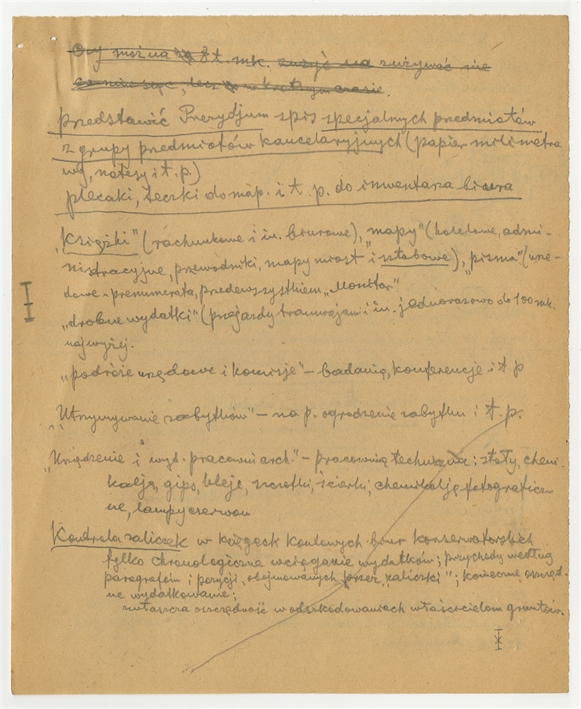 Czy można za 8 t. mk. zużyć na zużywać nie
co miesiąc, lecz w krótkim czasie.
przedstawić Prezydjum spis specjalnych przedmiotów
z grupy przedmiotów kancelaryjnych (papier milimetro
wy, notesy i t. p.)
plecaki, teczki do map. i t. p. do inwentarza biura
"Książki" (rachunkowe i in. biurowe), "mapy" (kolejowe, admi-
nistracyjne, przewodniki, mapy miast i sztabowe), "pisma" (urzę-
dowe - prenumerata, przedewszystkiem "Monitor"
"drobne wydatki" (przejazdy tramwajami i in. jednorazowo do 100 mk.
najwyżej.
"podróże urzędowe i komisje" – badania, konferencje i t p
"Utrzymywanie zabytków" – na p. ogrodzenie zabytku i t. p.
"Urządzenie i wyd. pracowni arch" – pracownia techniczna: stoły, chemi-
kalja, gips, kleje, szczotki, ścierki, chemikalja fotograficz
ne, lampy czerwon
Kontrola zaliczek w księgach kontowych biur konserwatorskich
tylko chronologiczne wciąganie wydatków; przychody według
paragrafów i pozycji, obejmowanych przez "zaliczki"; konieczne oszczęd-
ne wydatkowanie;
zwłaszcza oszczędność w odszkodowaniach właścicielom gruntów.